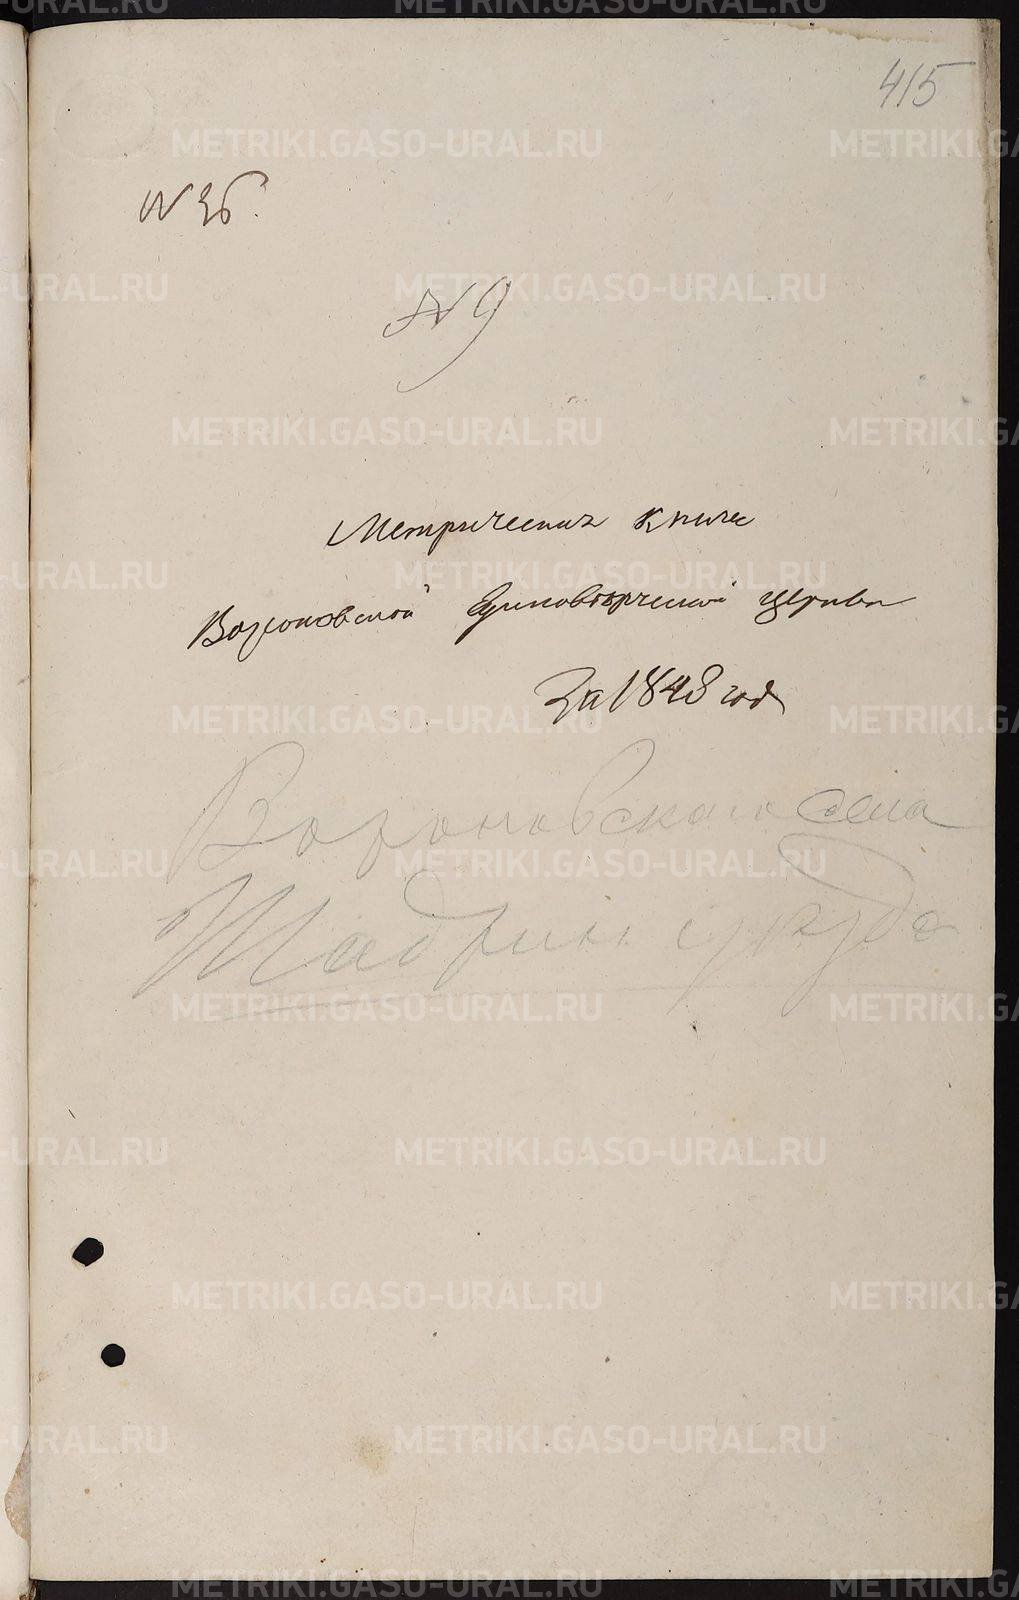 415
N 26.
N 9
Метрическая книга
Вороновской Единоверческой церкви
За 1848 год
Вороновскаго села
Шадрин. уезда
METRIKI.GASO-URAL.RU